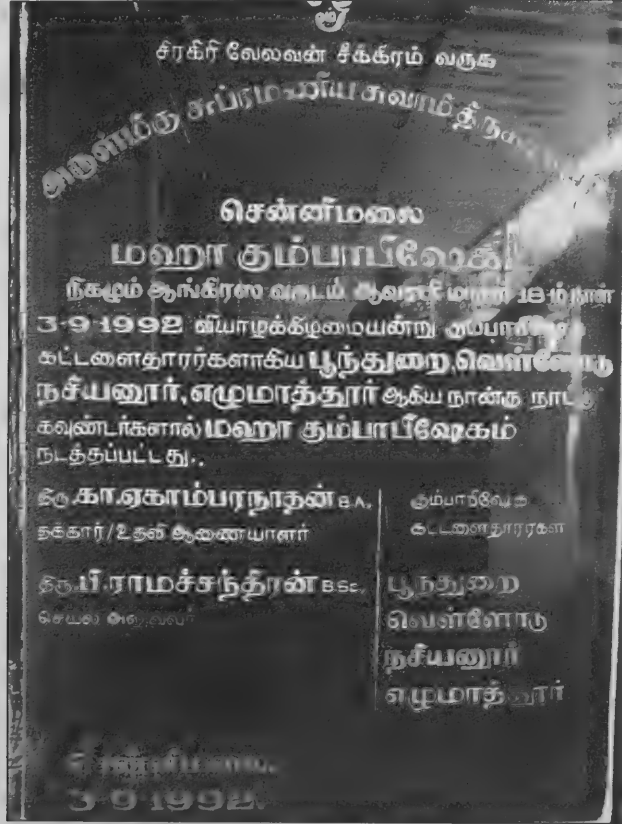 சிரகிரி வேலவன் சீக்கிரம் வருக
அருள்மிகு சுப்ரமணிய சுவாமித்
சென்னிமலை
மஹா கும்பாபிஷேகம்
நிகழும் ஆங்கிரஸ வருடம் ஆவணி மாதம் 18-ம்நாள்
3-9-1992 வியாழக்கிழமையன்று கும்பாபிஷேக
கட்டளைதாரர்களாகிய பூந்துறை,வெள்ளோடு
நசியனூர்,எழுமாத்தூர் ஆகிய நான்கு நாட்டு
கவுண்டர்களால் மஹா கும்பாபிஷேகம்
நடத்தப்பட்டது..
திரு.கா.ஏகாம்பரநாதன் B.A.,
தக்கார்/உதவி ஆணையாளர்
திரு.பி.ராமச்சந்திரன் B.Sc.,
செயல் அலுவலர்
கும்பாபிஷேக
கட்டளைதாரர்கள்
பூந்துறை
வெள்ளோடு
நசியனூர்
எழுமாத்தூர்
சென்னிமலை,
3-9-1992.